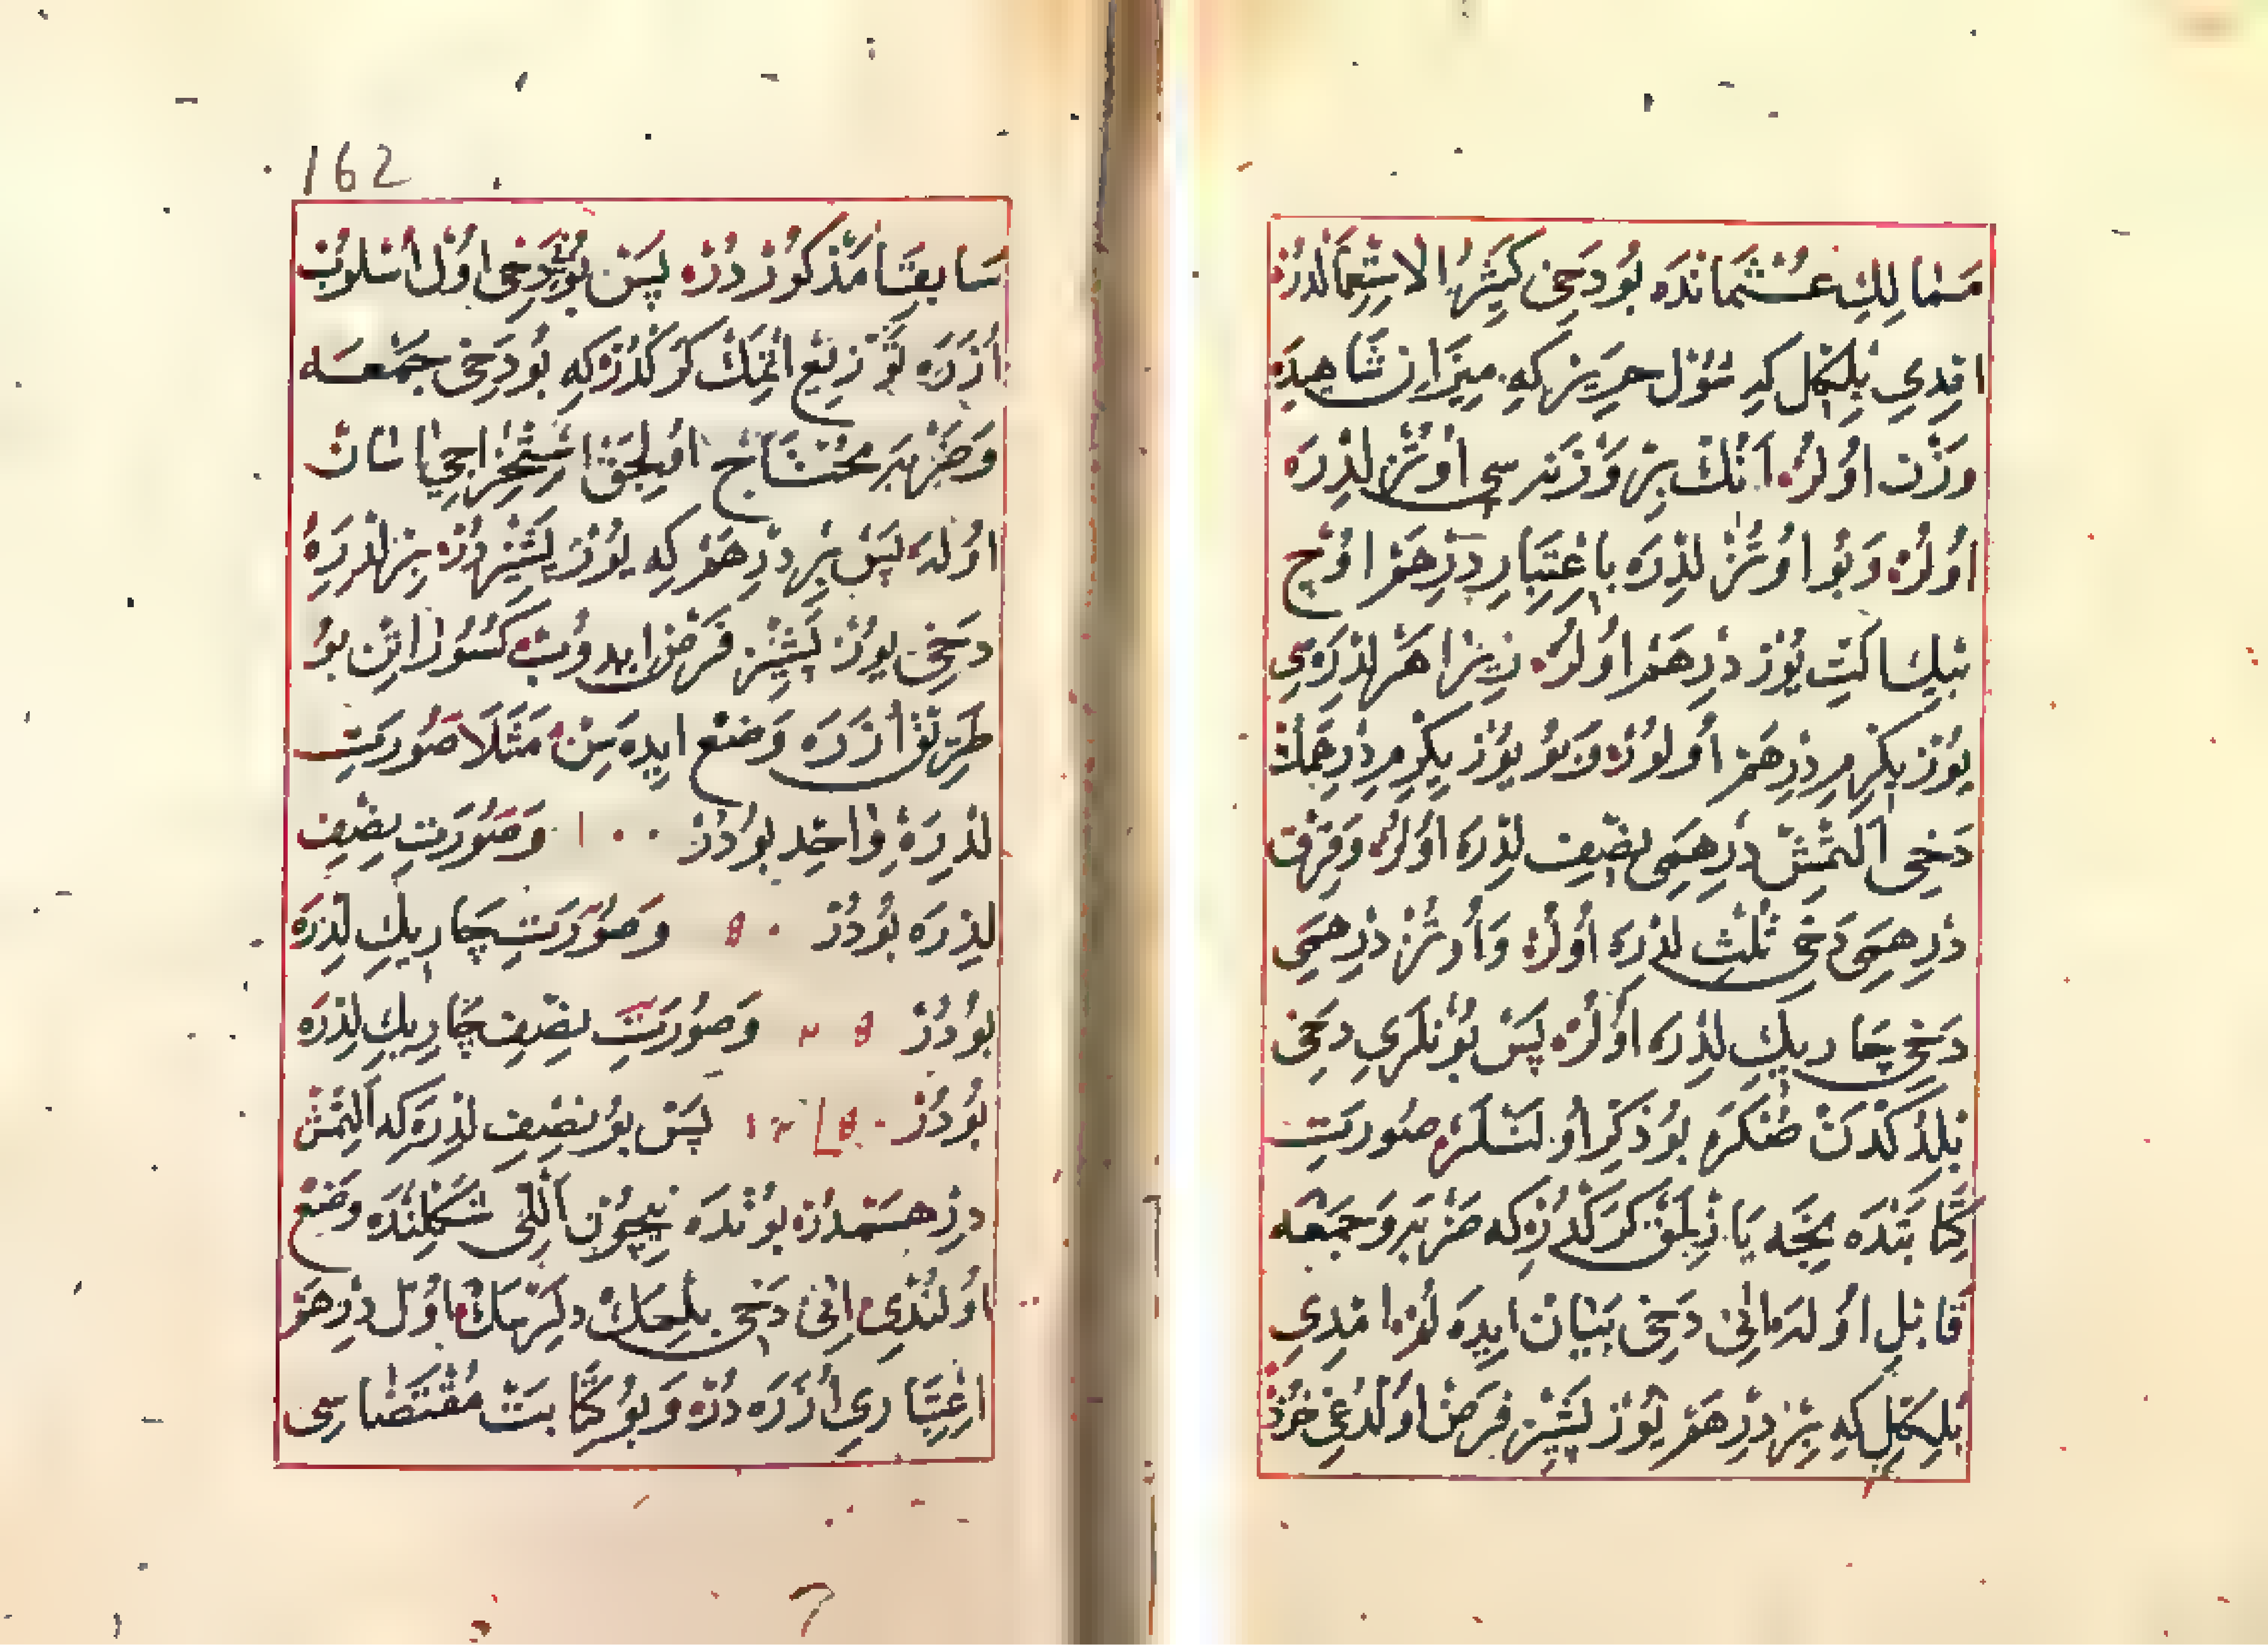 مَمَالِكِ عُثْمَانْدَه بُودَخِى كَثِيرُ الاِسْتِعْمَالْدُرْ
امْدِي بِلْكِلْ كِه شُوْل حَرِيرْ كِه مِيزَانِ شَاهِيدَه
وَزْن اوُلُرْ اَنُكْ بِرْ وَزْنَه سِى اوُتُزْ لِذْرَه
اوُلُرْ وَبُو اوُتُزْ لِذْرَه بِاعْتِبَارِ دِرْهَمْ اوُچ
بِيكْ اَلتِى يُوزْ دِرْهَمْ اوُلُرْ زِيرَا هَرْ لِذْرَه يِى
يُوزْ يِكِرْمِ دِرْهَمْ اوُلوُرْ وَبُو يُوزْ يِكِرْمِ دِرْهَمُكْ
دَخِى اَلْتْمِشْ دِرْهَمِى نِصْفِ لِذْرَه اوُلُرْ وَقِرْق
دِرْهَمِى دَخِى ثُلْثِ لِذْرَه اوُلُرْ وَاوُتُزْ دِرْهَمِى
دَخِى چَارِيكِ لِذْرَه اوُلُرْ پَسْ بُونْلَرِي دَخِى
بِلْدُكْدَنْ صُنْكَرَه بُو ذِكْر اوُلُنَنْلَرُ صُورَتِ
كِتَابَتْدَه نِجَه يَازِلْمَقْ كَرَكْدُرْ كِه ضَرْبَه وَجَمْعَه
قَابِلْ اوُلَه اَنِى دَخِى بَيَانْ ايدَه لُوْم امْدِي
بِلْكِلْ كِه بِرْ دِرْهَمْ يُوزْ بَشِيزْ فَرْضْ اوُلْدُغِى خُوْدْ
162
سَابِقَا مَذْكُورْدُرْ پَسْ بُو دَخِى اوُل اُسْلُوبْ
اُزَرَه تَوْزِيعْ اتْمَكْ كَرَكْدُرْكِه بُو دَخِى جَمْعَه
وَضَرْبَه مُحْتَاج اوُلِجَقْ اِسْتِخْرَاجِى اَسَانْ
اوُلَه پَسْ بِرْ دِرْهَمْ كِه يُوزْ بَشِيزْدُرْ بِرْ لِذْرَه
دَخِى يُوزْ بَشِيزْ فَرْض ايدوُبْ كُسُورَاتِنْ بُو
طَرِيقْ اُزَرَه وَضْع ايدَه سِنْ مَثَلَا صُورَتِ
لِذْرَهِ وَاحِدْ بُودُرْ ١٠٠ وَصُورَتِ نِصْفِ
لِذْرَه بُودُرْ وَصُورَتِ چَارِيكِ لِذْرَه
بُودُرْ وَصُورَتِ نِصْفِ چَارِيكِ لِذْرَه
بُودُرْ پَسْ بُو نِصْفِ لِذْرَه كِه اَلْتْمِشْ
دِرْهَمْدُرْ بُونْدَه نِيچُونْ اَللِّى شَكْلِنْدَه وَضْع
اوُلُنْدِى انِى دَخِى بِلْمَكْ دِلَرْسَكْ اوُل دِرْهَمْ
اِعْتِبَارِي اُزَرَه دُرْ وَبُو كِتَابَتْ مُقْتَضَاسِى